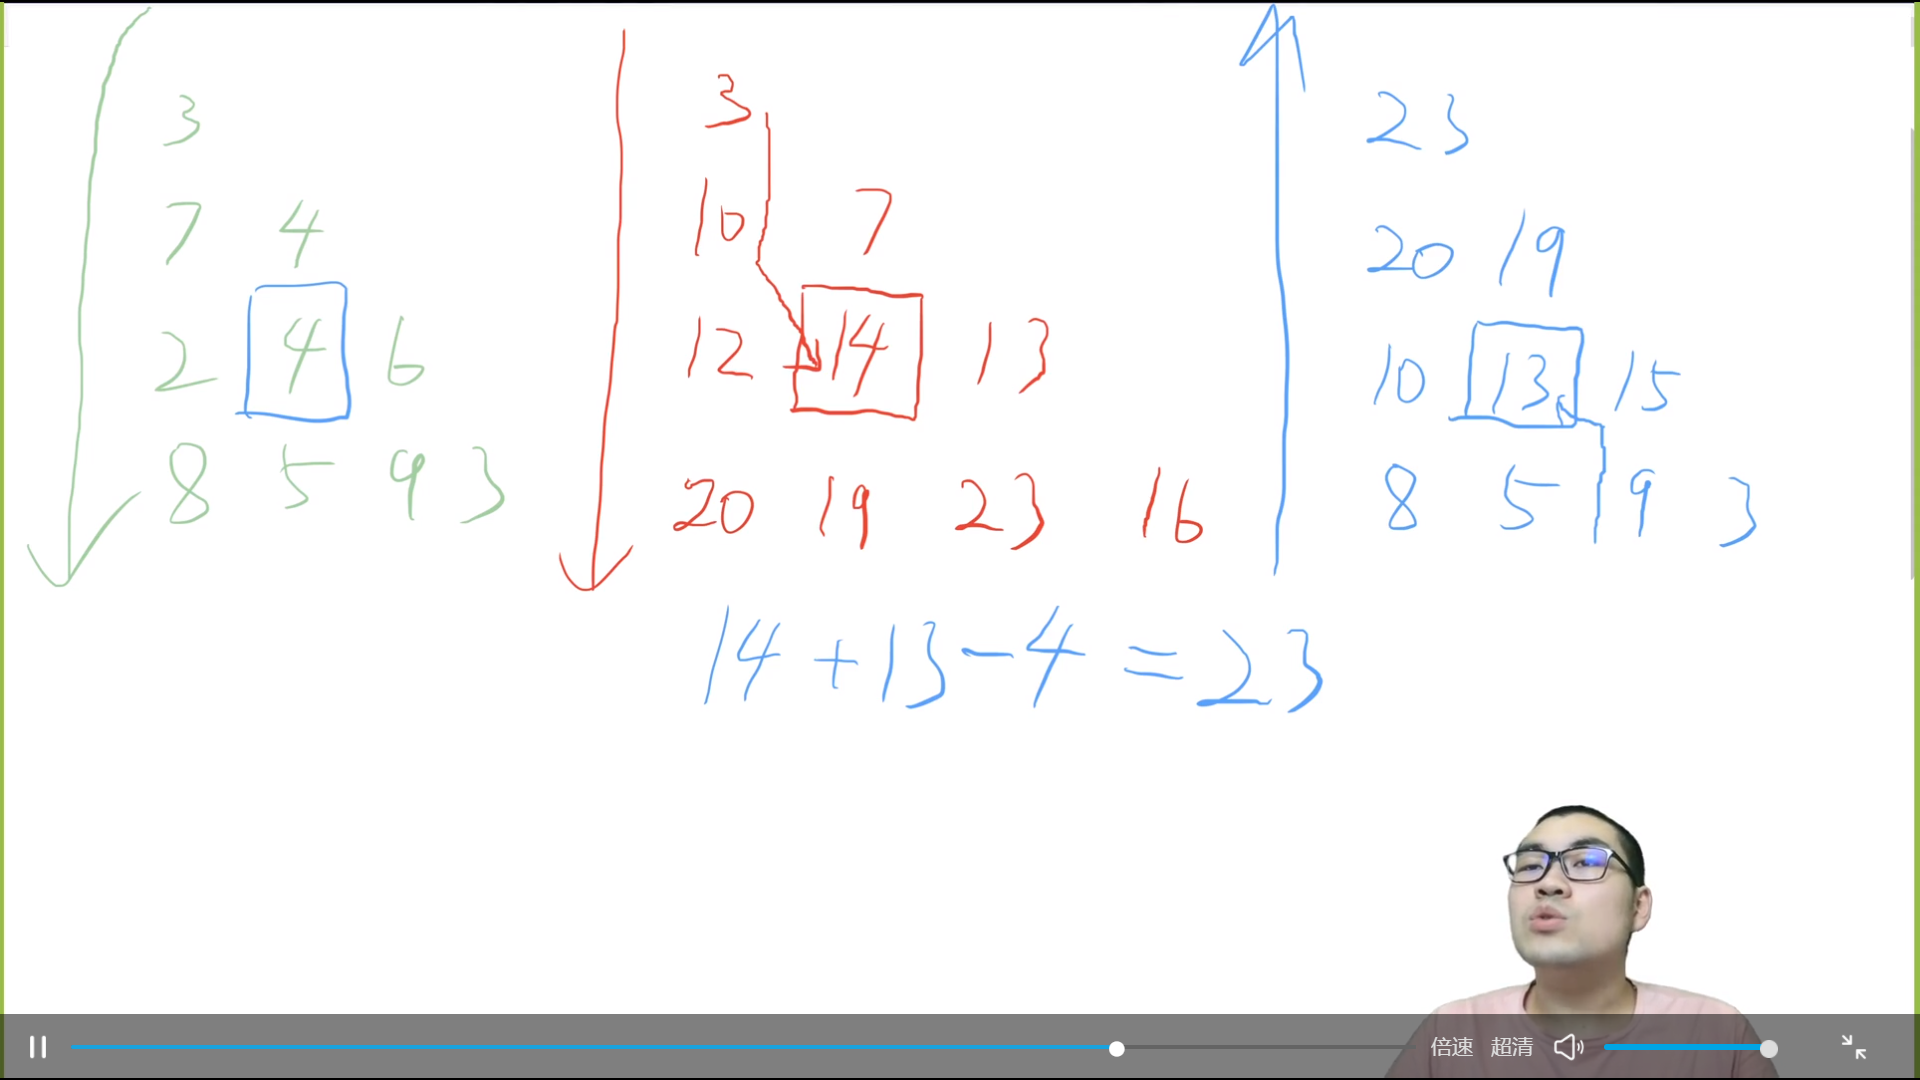 3
7 4
2 4 6
8 5 9 3
3
10 7
12 14 13
20 19 23 16
23
20 19
10 13 15
8 5 9 3
14+13-4=23
倍速 超清